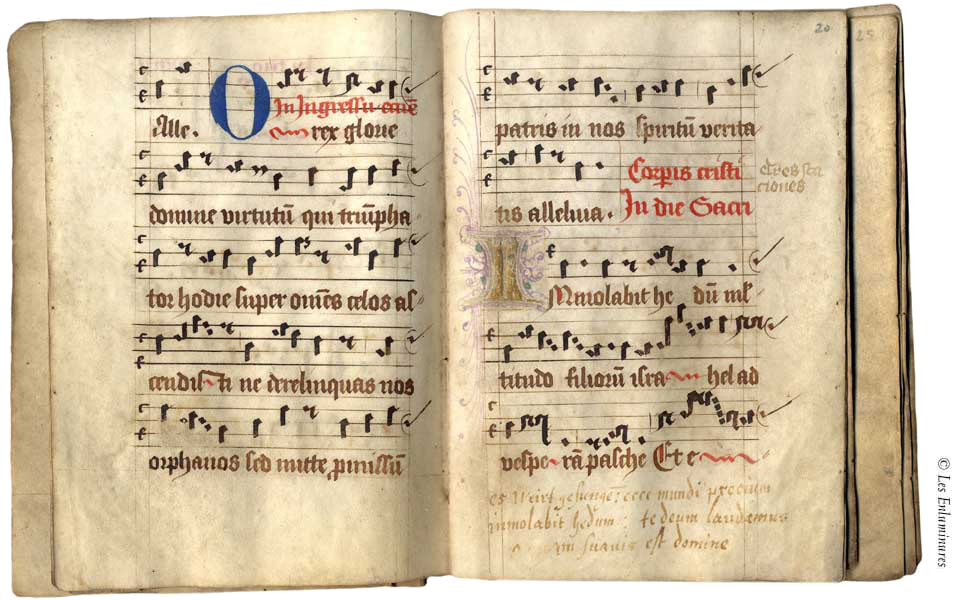 In Ingressu
Alle. O rex glorie
domine virtutũ qui triũpha
tor hodie super omẽs celos as-
cendisti ne derelinquas nos
orphanos sed mitte ꝓmissũ
20
25
patris in nos spiritũ verita
Corpis cristi
tis alleluia. In die Sacri
sta
ciones
Immolabit he dũ ml'
titudo filiorũ isra hel ad
vespe rã pasche Et e
es Weirt gesungẽ: ecce mundi precium
inmolabit hedum: te deum laudamus
quam suauis est domine
© Les Enluminures